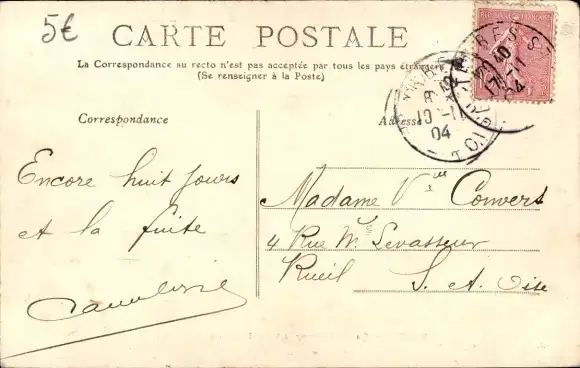 5€
CARTE POSTALE
La Correspondance au recto n'est pas acceptée par tous les pays étrangers
(Se renseigner à la Poste)
Correspondance
Adresse
8
10-11
04
40
11
04
Encore huit jours
et la fuite
Madame Vve Convert
4 Rue Me Levasseur
Rueil S. et Oise